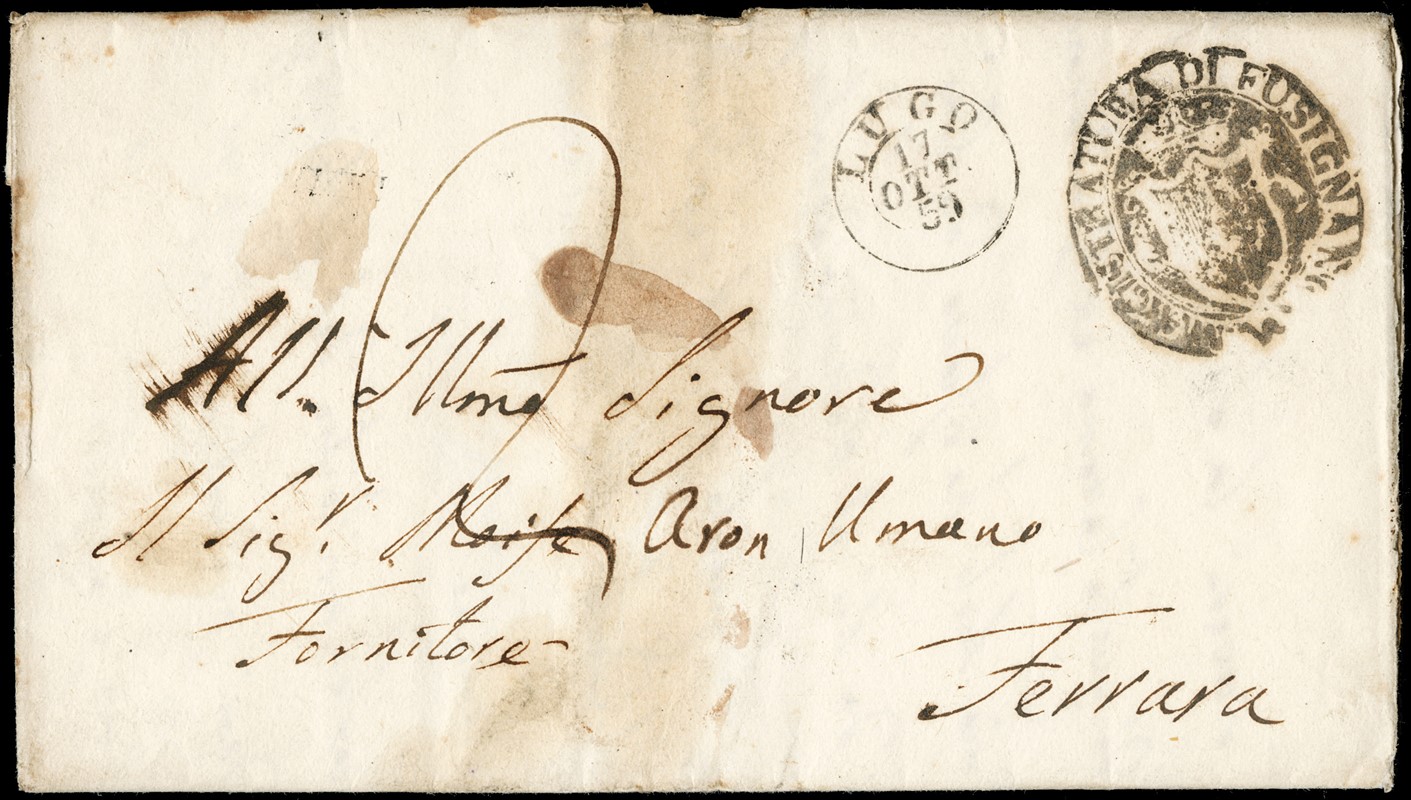 LUGO
17
OTT
59
MAGISTRATURA DI FUSIGNANO
All. Illmo Signore
Il Sigr. Aron Umano
Fornitore
Ferrara